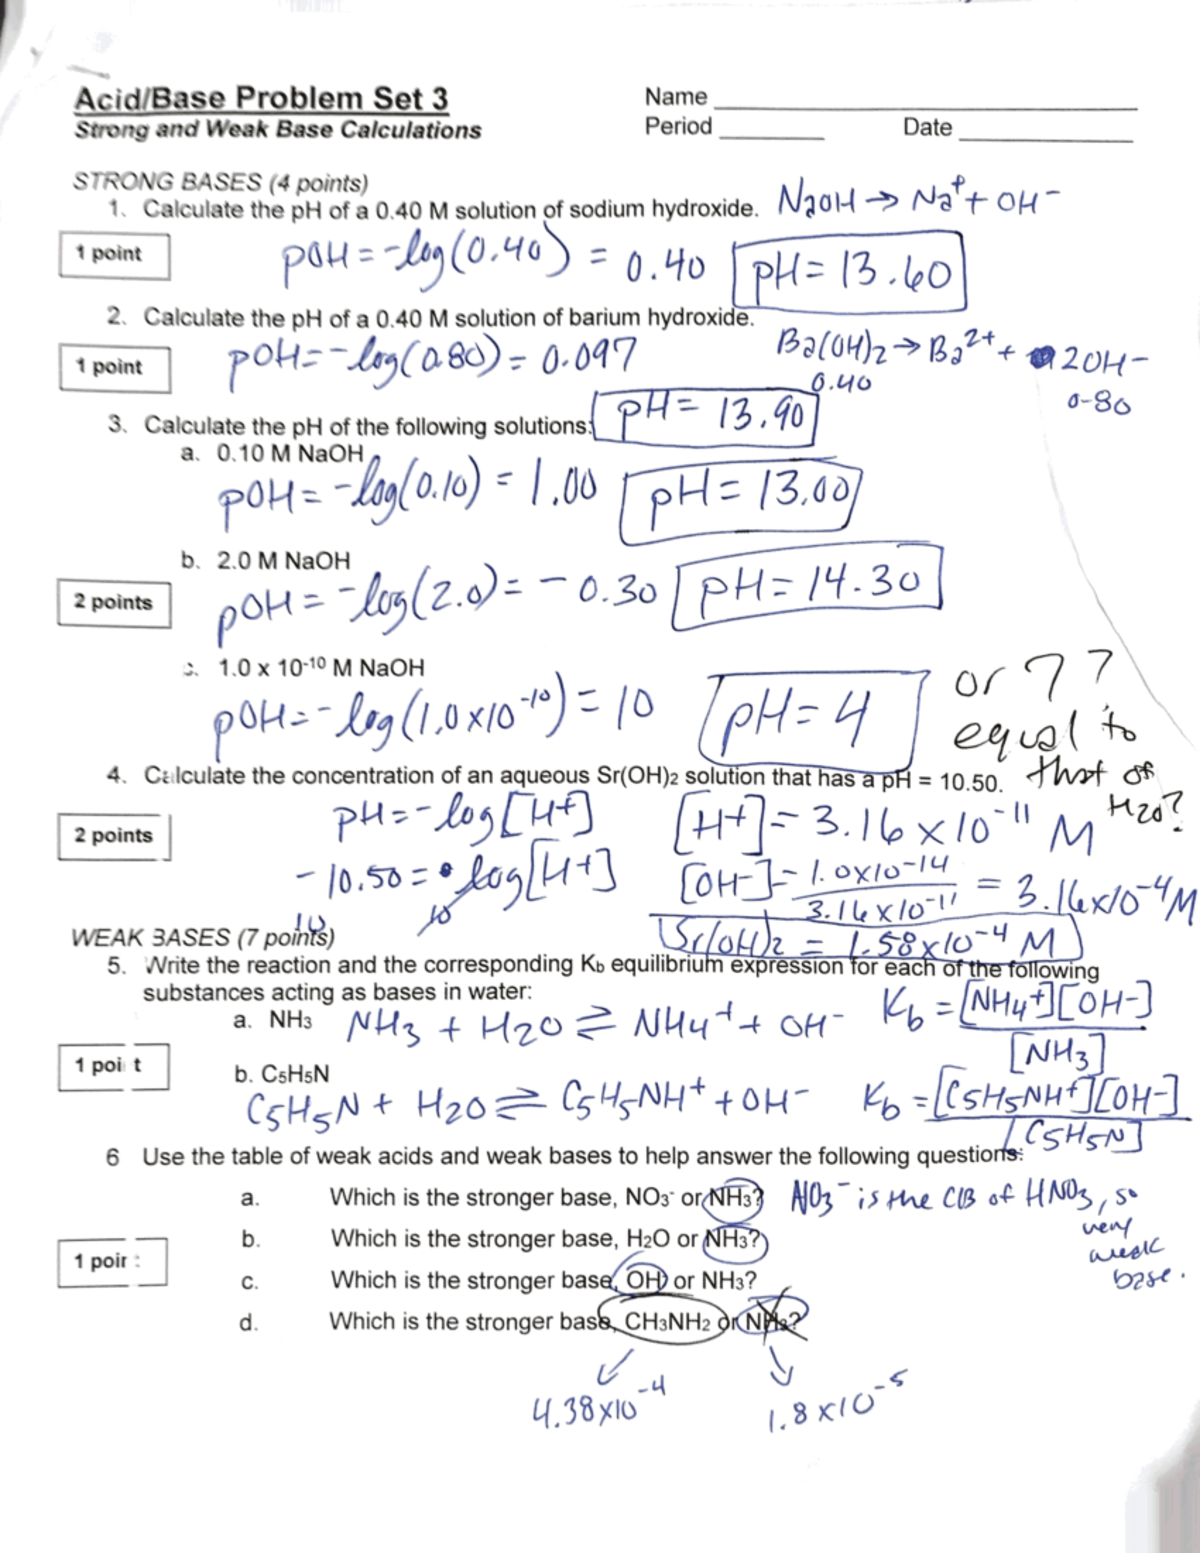 Acid/Base Problem Set 3
Name
Strong and Weak Base Calculations
Period Date
STRONG BASES (4 points)
1. Calculate the pH of a 0.40 M solution of sodium hydroxide. NaOH → Na⁺ + OH⁻
1 point
pOH = -log(0.40) = 0.40 pH = 13.60
2. Calculate the pH of a 0.40 M solution of barium hydroxide.
1 point
pOH = -log(0.80) = 0.097
Ba(OH)2 → Ba²⁺ + 2OH⁻
0.40 0.80
pH = 13.90
3. Calculate the pH of the following solutions:
a. 0.10 M NaOH
pOH = -log(0.10) = 1.00 pH = 13.00
b. 2.0 M NaOH
2 points
pOH = -log(2.0) = -0.30 pH = 14.30
c. 1.0 x 10⁻¹⁰ M NaOH
pOH = -log(1.0x10⁻¹⁰) = 10 pH = 4
or 7?
equal to
that of
H2O?
4. Calculate the concentration of an aqueous Sr(OH)2 solution that has a pH = 10.50.
2 points
pH = -log[H+] [H+] = 3.16 x 10⁻¹¹ M
-10.50 = log[H+] [OH-] = 1.0x10⁻¹⁴ / 3.16x10⁻¹¹ = 3.16x10⁻⁴ M
10 10
Sr(OH)2 = 1.58x10⁻⁴ M
WEAK BASES (7 points)
5. Write the reaction and the corresponding Kb equilibrium expression for each of the following
substances acting as bases in water:
a. NH3 NH3 + H2O ⇌ NH4⁺ + OH⁻ Kb = [NH4+][OH-] / [NH3]
1 poi t
b. C5H5N
C5H5N + H2O ⇌ C5H5NH⁺ + OH⁻ Kb = [C5H5NH+][OH-] / [C5H5N]
6 Use the table of weak acids and weak bases to help answer the following questions:
a. Which is the stronger base, NO3⁻ or NH3? NO3⁻ is the CB of HNO3, so
very
weak
base.
b. Which is the stronger base, H2O or NH3?
1 poir :
c. Which is the stronger base, OH⁻ or NH3?
d. Which is the stronger base, CH3NH2 or NH3?
4.38x10⁻⁴ 1.8x10⁻⁵